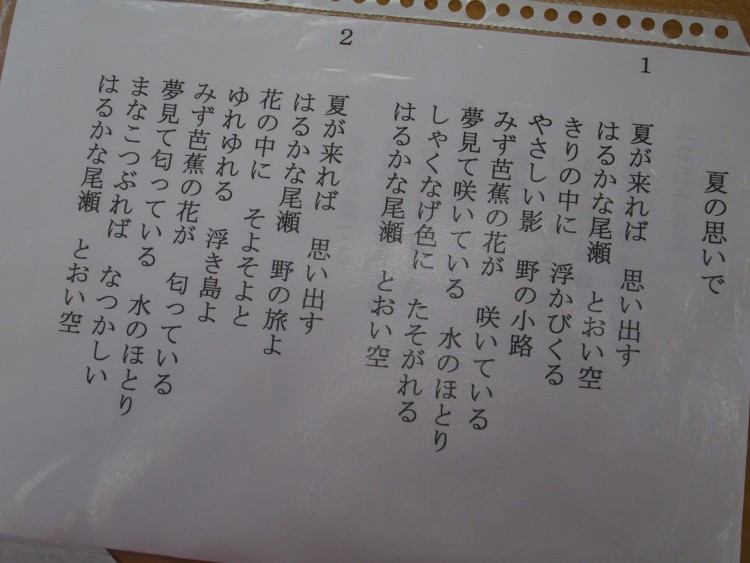 夏の思いで
1
夏が来れば　思い出す
はるかな尾瀬　とおい空
きりの中に　浮かびくる
やさしい影　野の小路
みず芭蕉の花が　咲いている
夢見て咲いている　水のほとり
しゃくなげ色に　たそがれる
はるかな尾瀬　とおい空
2
夏が来れば　思い出す
はるかな尾瀬　野の旅よ
花の中に　そよそよと
ゆれゆれる　浮き島よ
みず芭蕉の花が　匂っている
夢見て匂っている　水のほとり
まなこつぶれば　なつかしい
はるかな尾瀬　とおい空